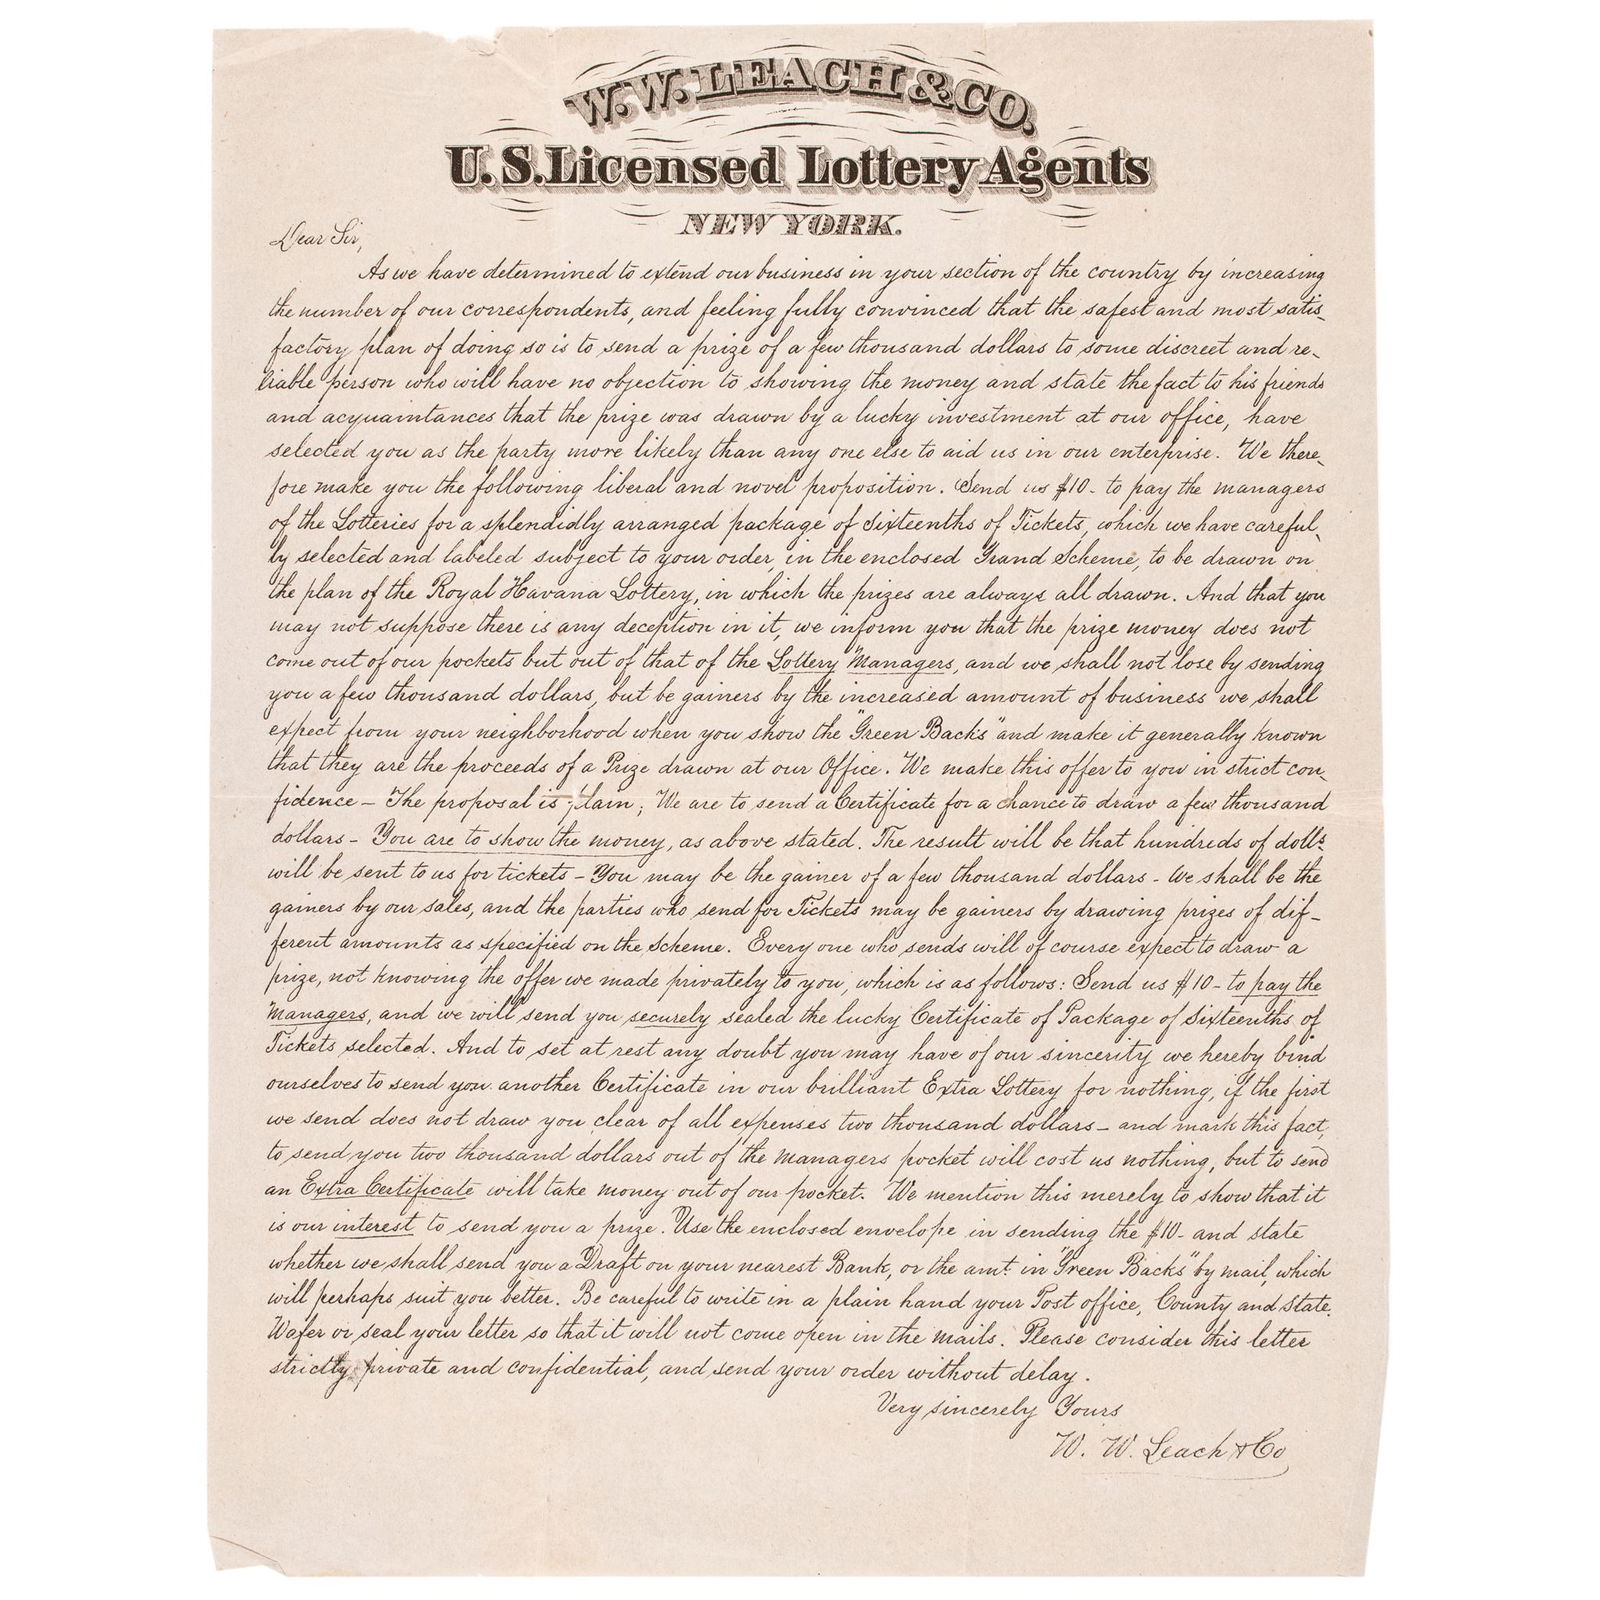 W. W. LEACH & CO.
U.S. Licensed Lottery Agents
NEW YORK.
Dear Sir,
As we have determined to extend our business in your section of the country by increasing
the number of our correspondents, and feeling fully convinced that the safest and most satis-
factory plan of doing so is to send a prize of a few thousand dollars to some discreet and re-
liable person who will have no objection to showing the money and state the fact to his friends
and acquaintances that the prize was drawn by a lucky investment at our office, have
selected you as the party more likely than any one else to aid us in our enterprise. We there-
fore make you the following liberal and novel proposition. Send us $10- to pay the managers
of the Lotteries for a splendidly arranged package of Sixteenths of Tickets, which we have careful-
ly selected and labeled subject to your order, in the enclosed Grand Scheme, to be drawn on
the plan of the Royal Havana Lottery, in which the prizes are always all drawn. And that you
may not suppose there is any deception in it, we inform you that the prize money does not
come out of our pockets but out of that of the Lottery Managers, and we shall not lose by sending
you a few thousand dollars, but be gainers by the increased amount of business we shall
expect from your neighborhood when you show the "Green Backs" and make it generally known
that they are the proceeds of a Prize drawn at our Office. We make this offer to you in strict con-
fidence - The proposal is plain; We are to send a Certificate for a chance to draw a few thousand
dollars - You are to show the money, as above stated. The result will be that hundreds of dolls.
will be sent to us for tickets - You may be the gainer of a few thousand dollars - We shall be the
gainers by our sales, and the parties who send for Tickets may be gainers by drawing prizes of dif-
ferent amounts as specified on the Scheme. Every one who sends will of course expect to draw a
prize, not knowing the offer we made privately to you, which is as follows: Send us $10 - to pay the
Managers, and we will send you securely sealed the lucky Certificate of Package of Sixteenths of
Tickets selected. And to set at rest any doubt you may have of our sincerity we hereby bind
ourselves to send you another Certificate in our brilliant Extra Lottery for nothing, if the first
we send does not draw you clear of all expenses two thousand dollars - and mark this fact,
to send you two thousand dollars out of the managers pocket will cost us nothing, but to send
an Extra Certificate will take money out of our pocket. We mention this merely to show that it
is our interest to send you a prize. Use the enclosed envelope in sending the $10- and state
whether we shall send you a Draft on your nearest Bank, or the amt. in "Green Backs" by mail, which
will perhaps suit you better. Be careful to write in a plain hand your Post office, County and State.
Wafer or seal your letter so that it will not come open in the mails. Please consider this letter
strictly private and confidential, and send your order without delay.
Very sincerely Yours
W. W. Leach & Co